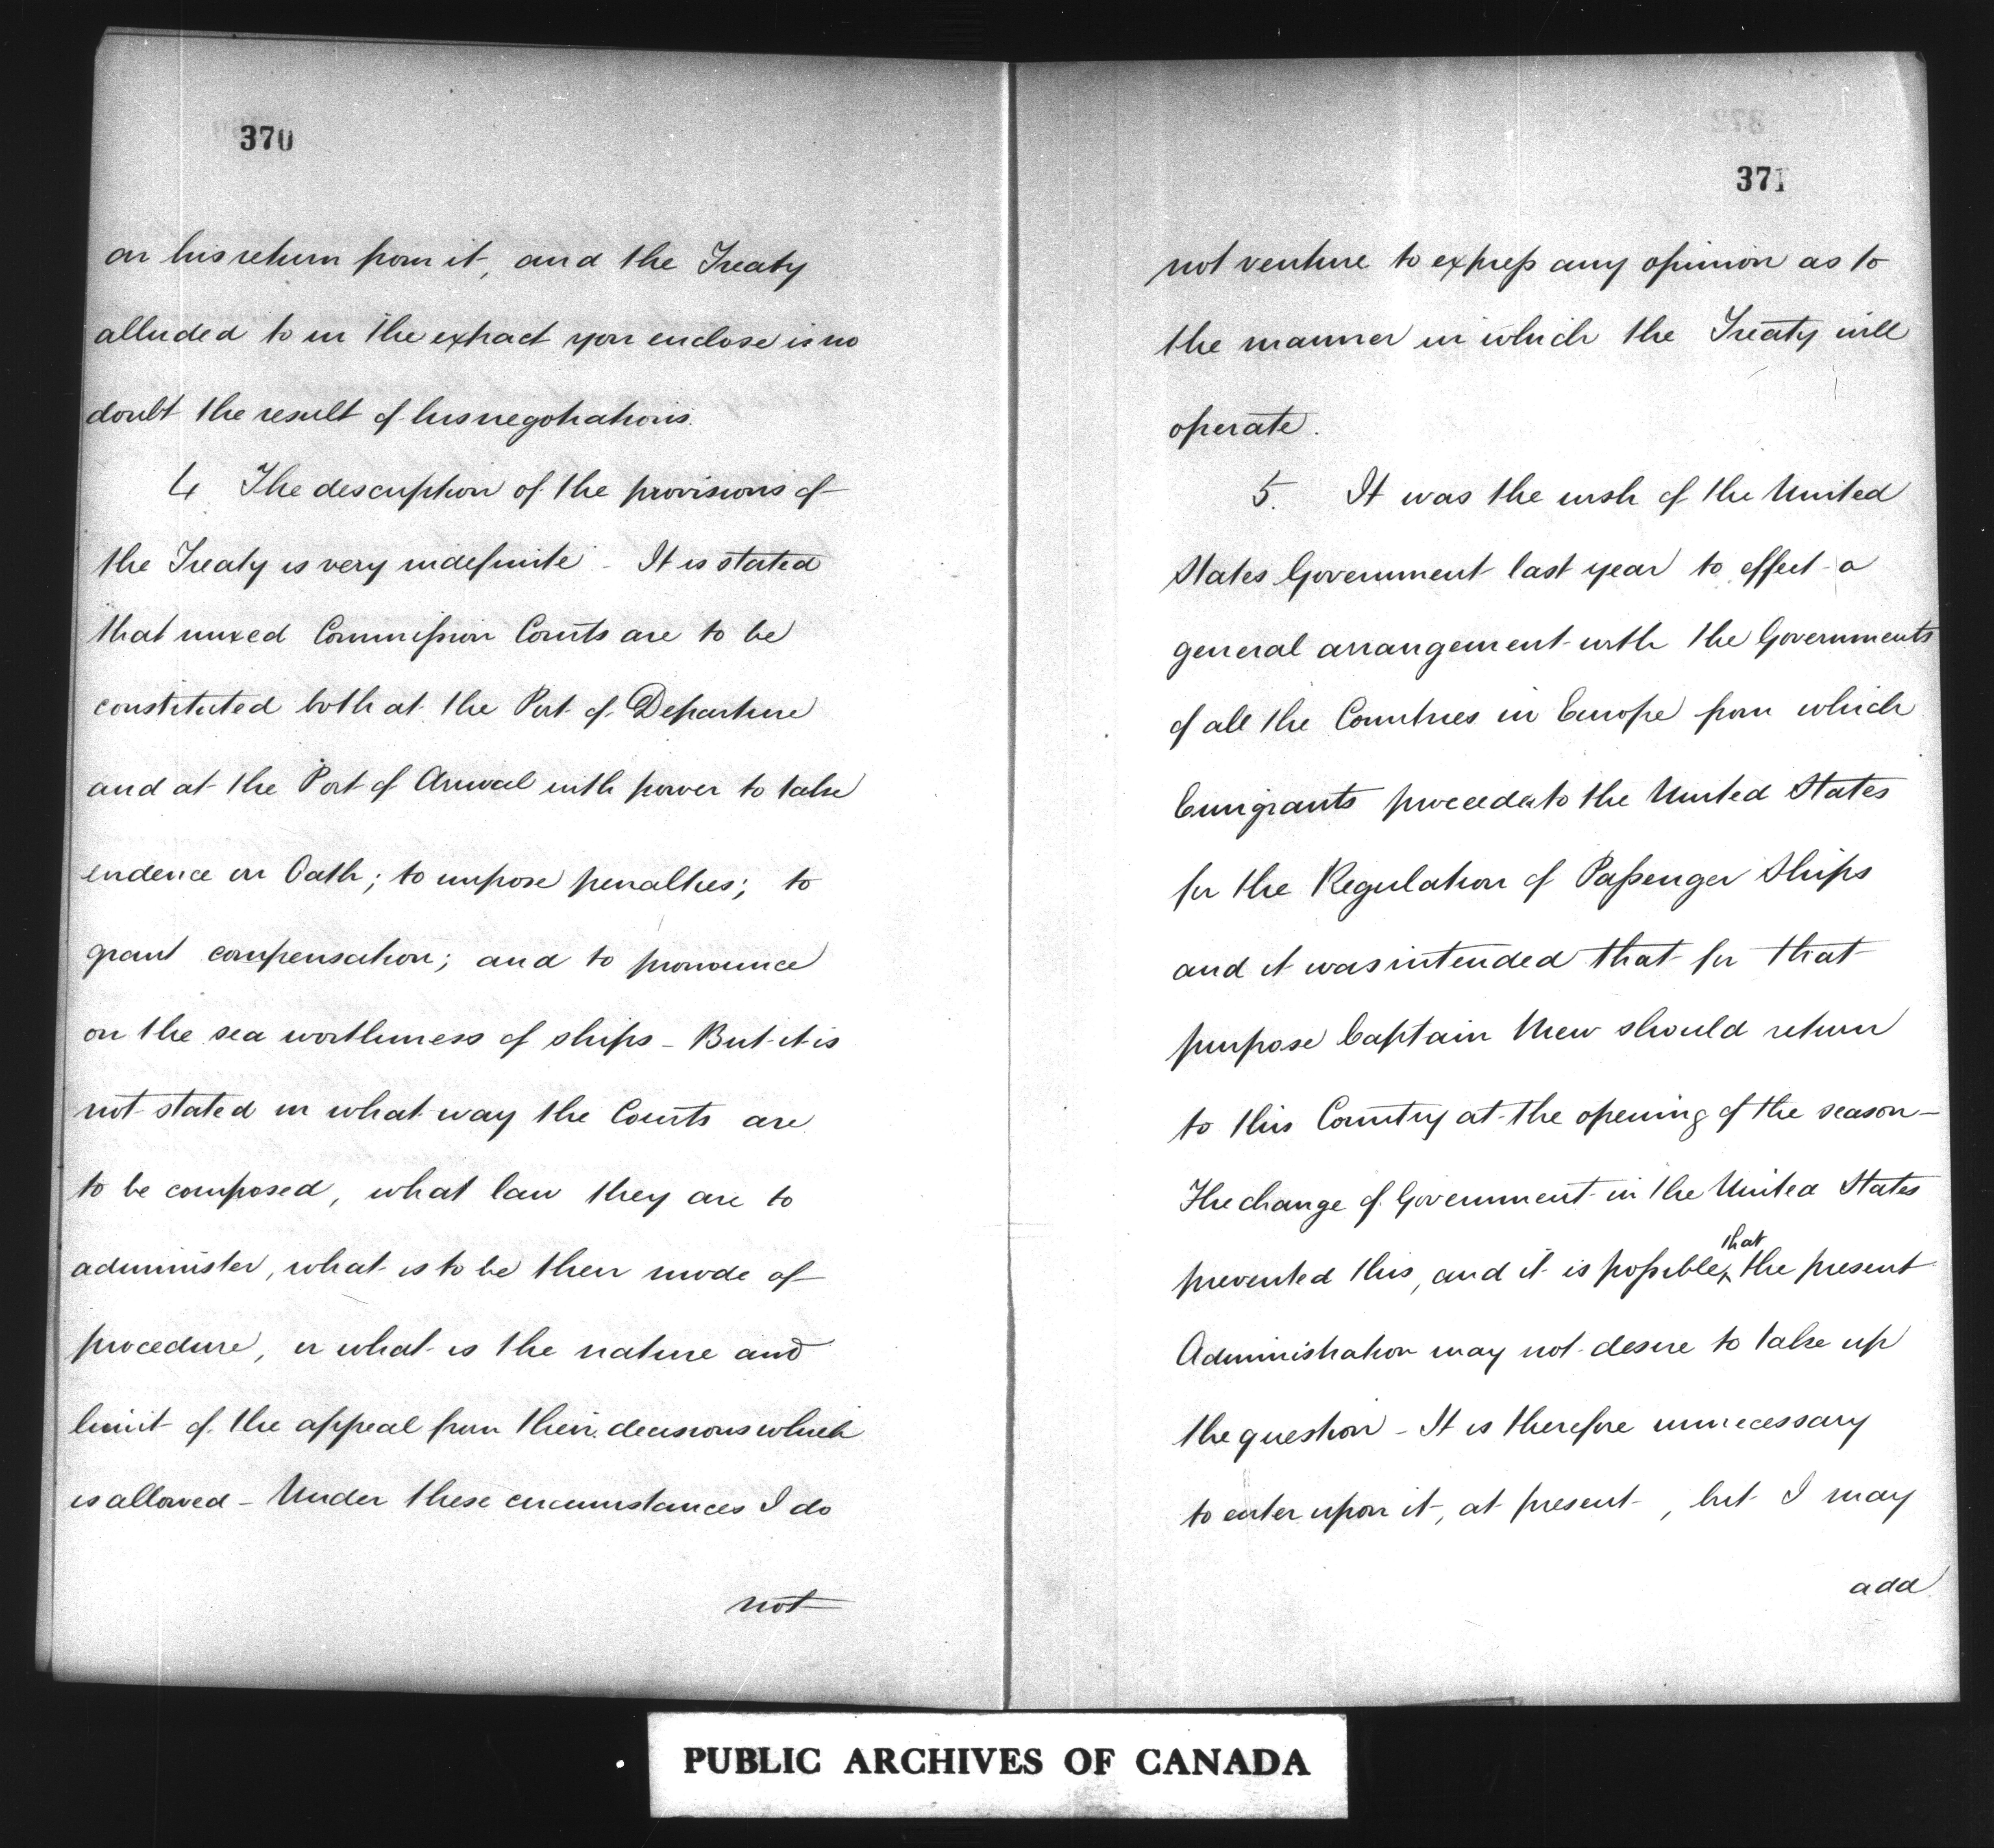 370
on his return from it, and the Treaty
alluded to in the extract you enclose is no
doubt the result of his negotiations.
4 The description of the provisions of
the Treaty is very indefinite - It is stated
that mixed Commission Courts are to be
constituted both at the Port of Departure
and at the Port of Arrival with power to take
evidence on Oath; to impose penalties; to
grant compensation; and to pronounce
on the sea worthiness of ships - But it is
not stated in what way the Courts are
to be composed, what law they are to
administer, what is to be their mode of
procedure, or what is the nature and
limit of the appeal from their decisions which
is allowed - Under these circumstances I do
not
371
not venture to express any opinion as to
the manner in which the Treaty will
operate.
5. It was the wish of the United
States Government last year to effect a
general arrangement with the Governments
of all the Countries in Europe from which
Emigrants proceed to the United States
for the Regulation of Passenger Ships
and it was intended that for that
purpose Captain should return
to this Country at the opening of the season -
The change of Government in the United States
prevented this, and it is possible that the present
Administration may not desire to take up
the question - It is therefore unnecessary
to enter upon it, at present, but I may
add
PUBLIC ARCHIVES OF CANADA